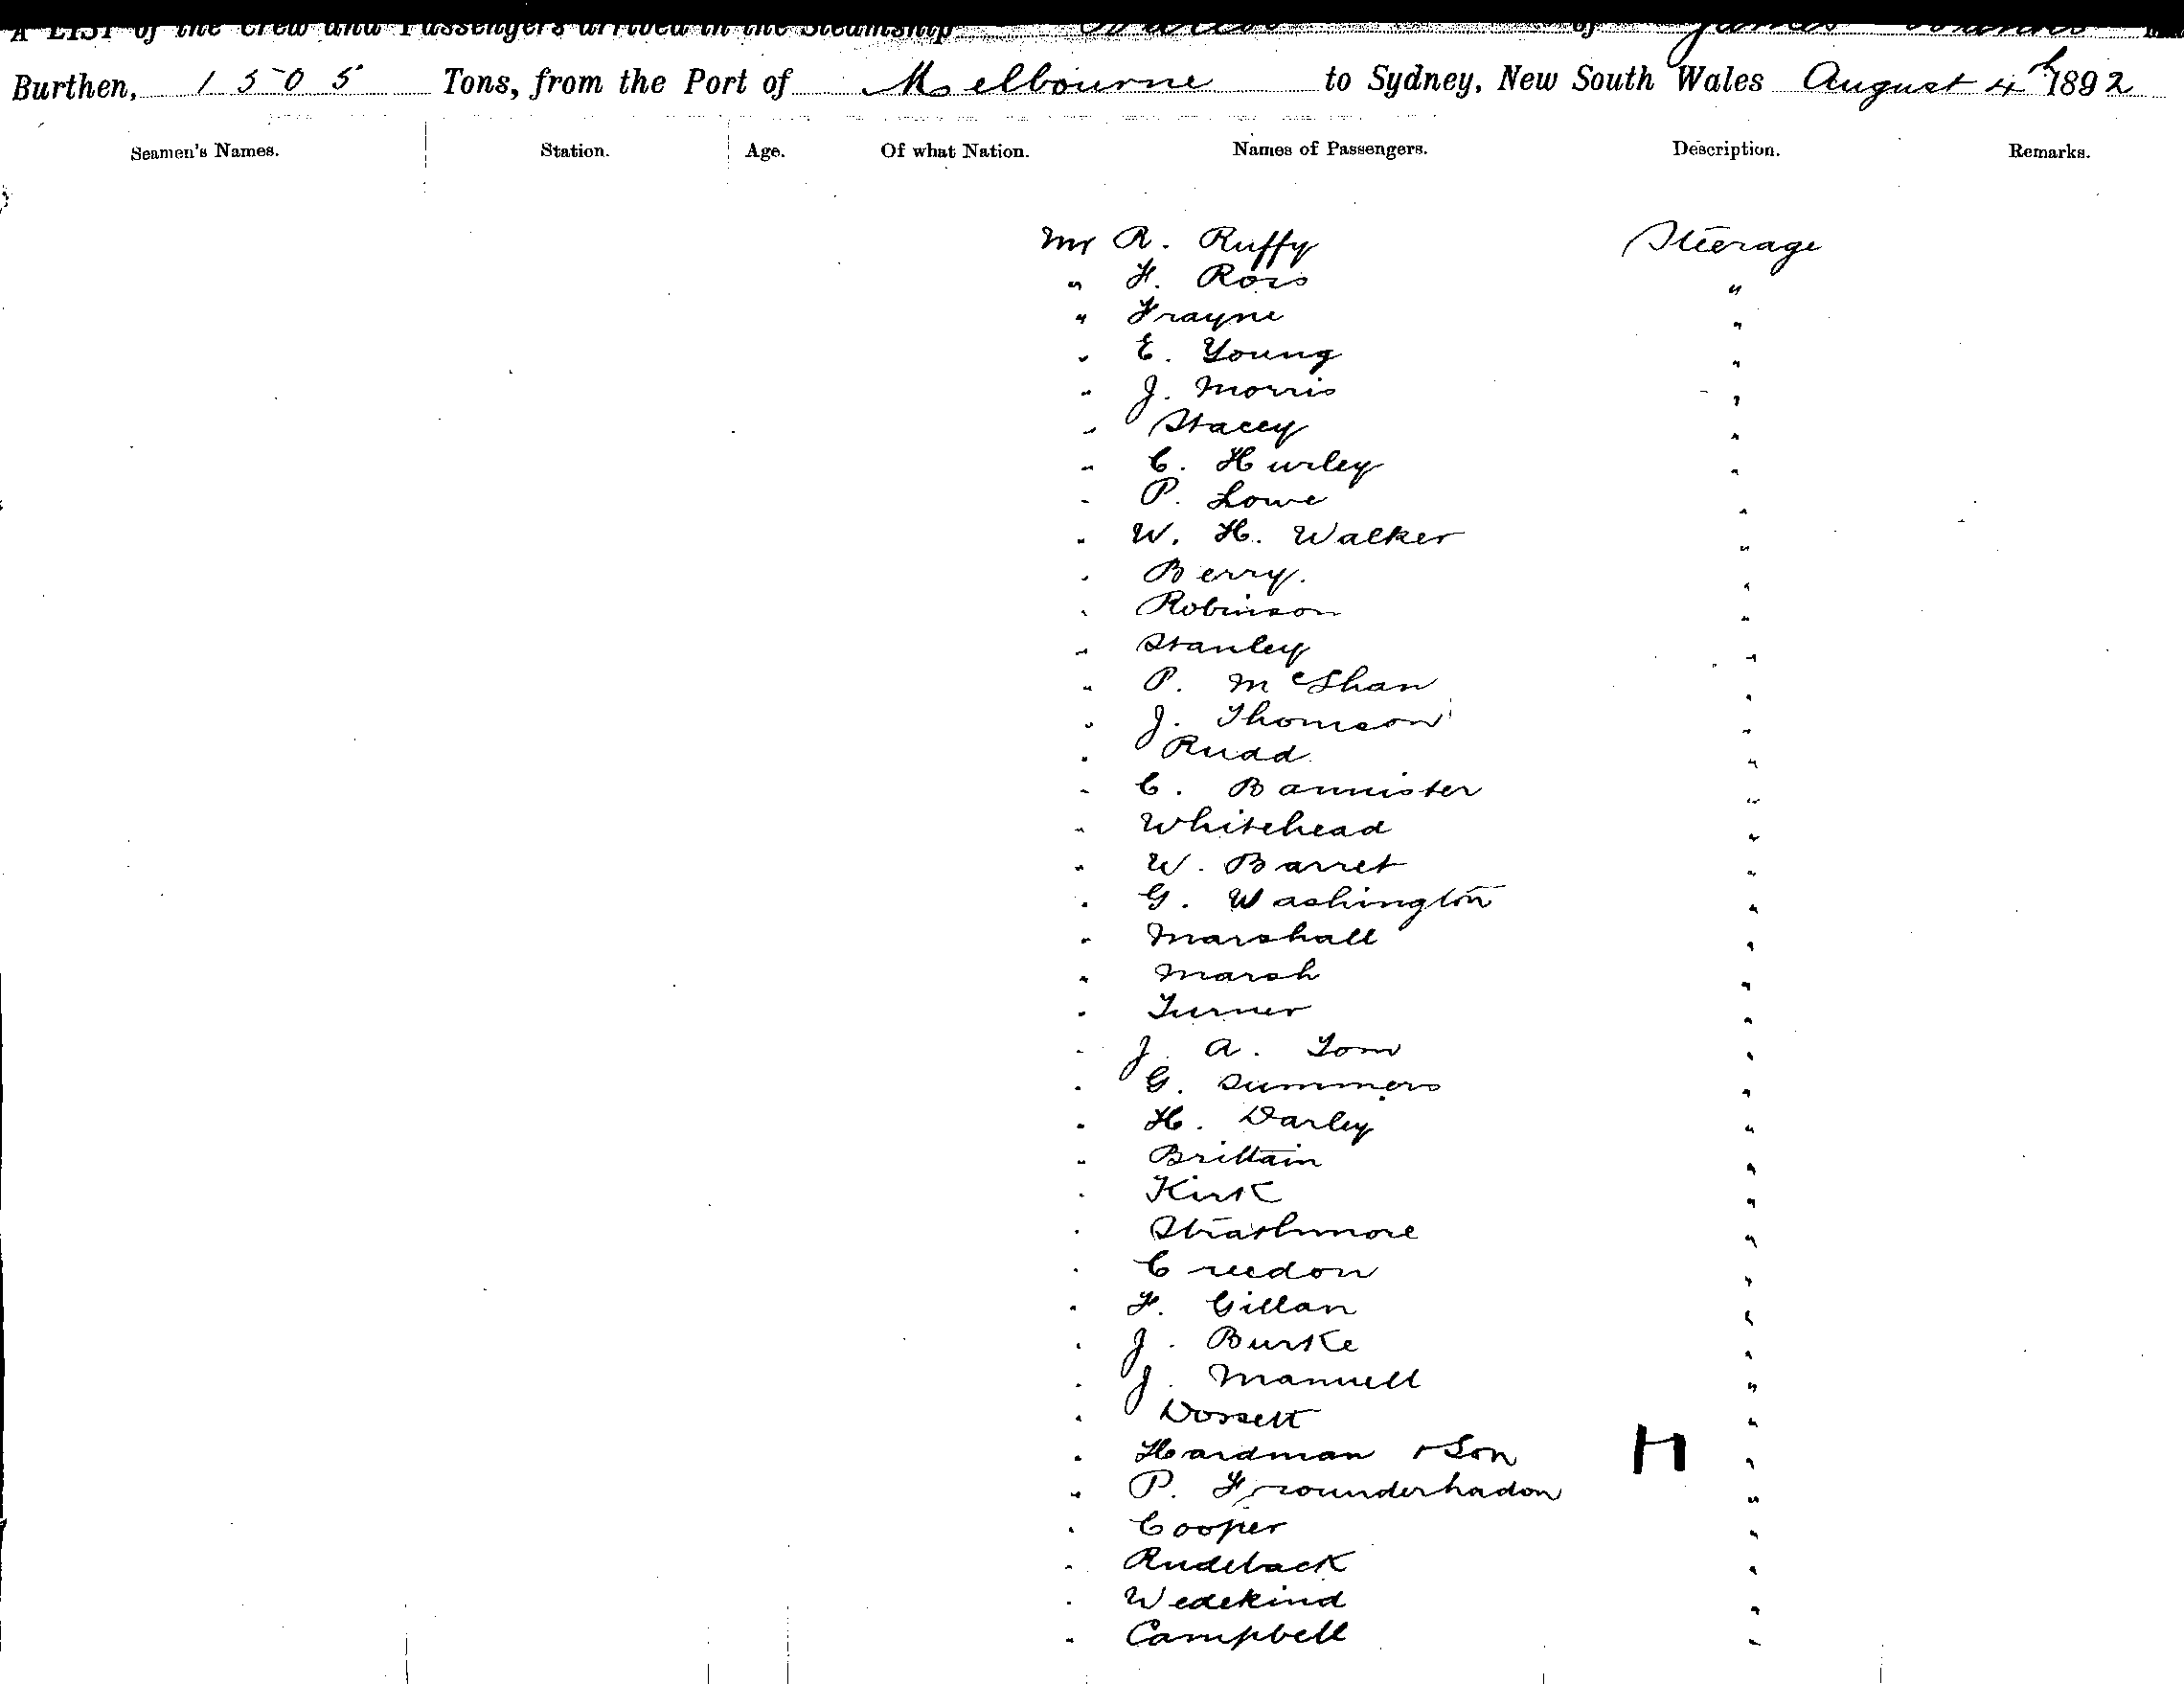 A LIST of the Crew and Passengers arrived in the Steamship of James
Burthen, 1505 Tons, from the Port of Melbourne to Sydney, New South Wales August 4th 1892
Seamen's Names. Station. Age. Of what Nation. Names of Passengers. Description. Remarks.
Mr R. Ruffy Steerage
" F. Ross "
" Frayne "
" E. Young "
" J. Morris "
" Stacey "
" C. Hurley "
" P. Lowe "
" W. H. Walker "
" Berry. "
" Robinson "
" Stanley "
" P. McShan "
" J. Thomson "
" Rudd "
" C. Bannister "
" Whitehead "
" W. Barret "
" G. Washington "
" Marshall "
" Marsh "
" Turner "
" J. A. Tom "
" G. Summers "
" H. Darley "
" Brittain "
" Kirk "
" Strathmore "
" Creedon "
" F. Gillan "
" J. Burke "
" J. Mannell "
" Dorsett "
" Hardman & Son H "
" P. "
" Cooper "
" Rudeback "
" Wedekind "
" Campbell "